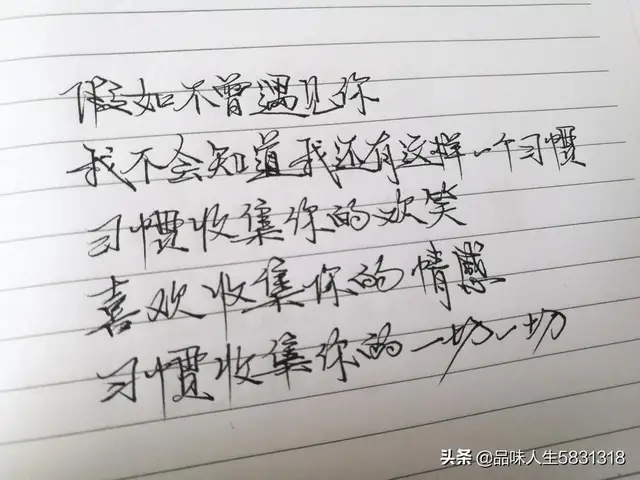 假如不曾遇见你
我不会知道我还有这样一个习惯
习惯收集你的欢笑
喜欢收集你的情感
习惯收集你的一切一切
头条 @品味人生5831318